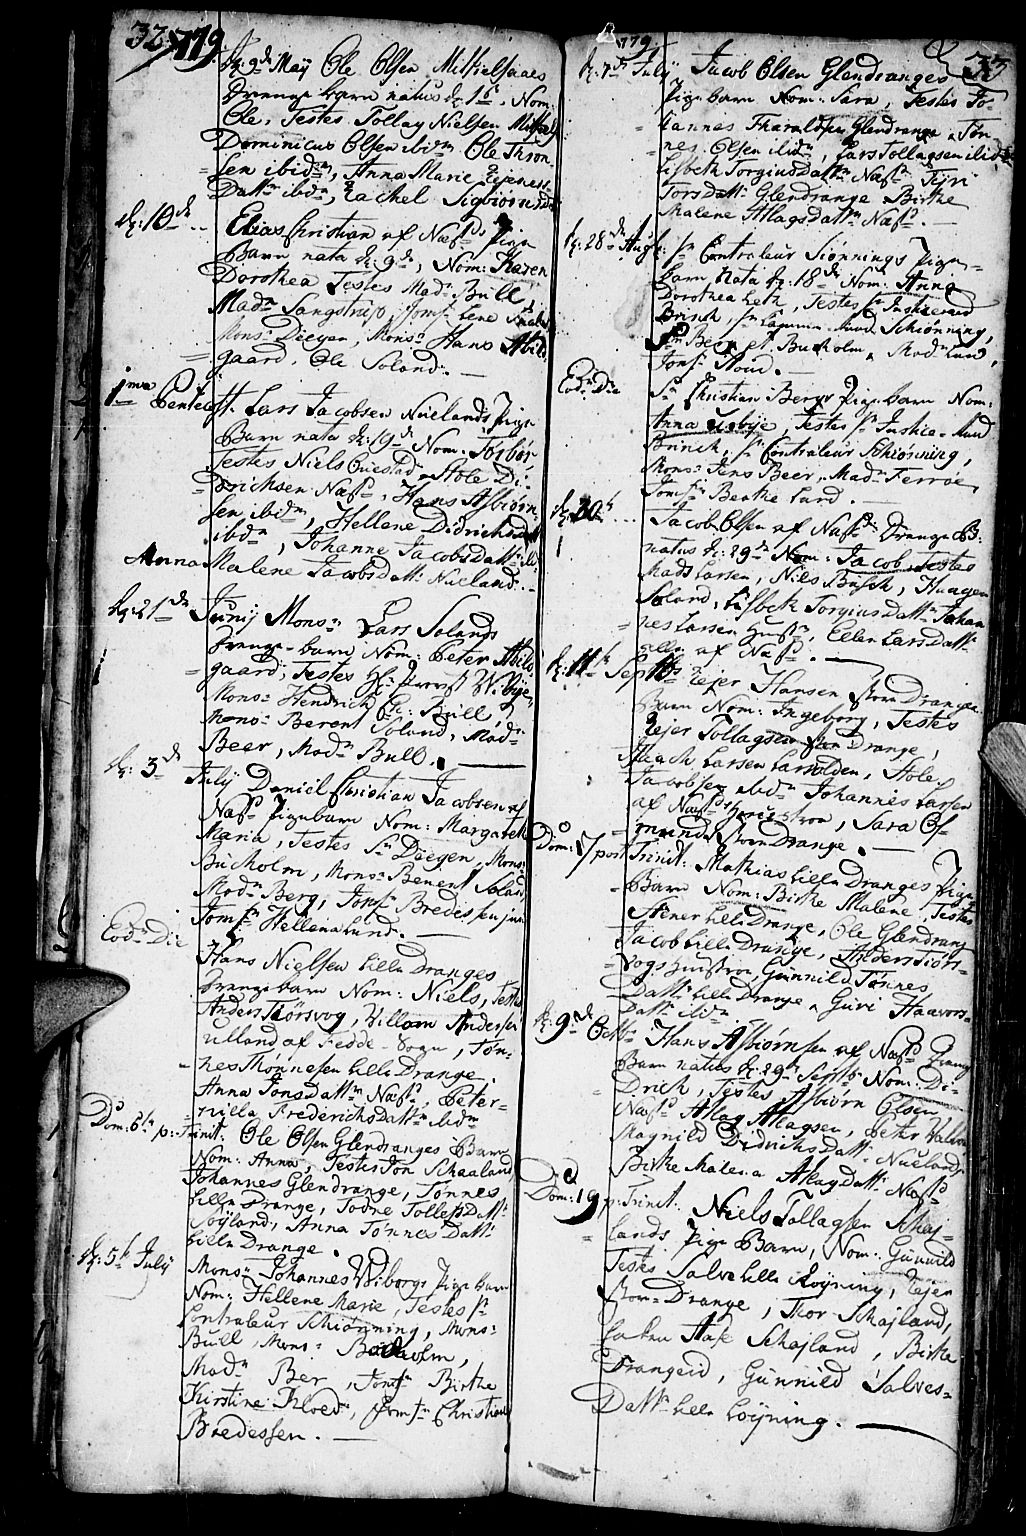 32 779.
d: 9de Maÿ Ole Olsen Mitkielsaaes
Drenge barn natus d: 1te, Nom:
Ole, Testes Tollag Nielsen
Dominicus Olsen ibidm Ole Thron
sen ibidm, Anna Marie Ejeness-
Dattr ibdm, Rachel Sigbiørnsdr
d: 10de Elias Christian af Næss Pige
Barn nata d: 9de, Nom: Karen
Dorothea Testes Madm Bull,
Madm Sangstrup, Jomf: Lene
Monsr Diegen, Monsr Hans Abils-
gaard, Ole Soland. —
1ma Pentecost. Lars Jacobsen Nuelands Pige
Barn nata d: 19de Nom: Torbor
Testes Niels Questad, Stole Di-
drichsen Næss, Hans Asbiørn-
sen ibidm, Hellene Didrichsdatt
ibdm, Johanne Jacobsdattr
Anna Malene Jacobsdattr Nueland.
d: 21de Junij Monsr Lars Solands
Drenge-barn Nom: Peter Abils-
gaard, Testes Hr: Provst Wibye,
Monsr Hendrich Bull,
Monsr Berent Soland, Madm
Beer, Madm Bull. —
d: 3de Julij Daniel Christian Jacobsen af
Næss Pigebarn Nom: Margareth
Maria, Testes Sr Diegen, Mons:
Buchholm, Monsr Benent Soland
Madm Berg, Jomfr Bredessen
Jomfr Hellena Lund. —
Eodm Die Hans Nielsen Lille Dranges
Drenge barn Nom: Niels, Testes
Anders Tiørsvog, Villom Andersen
Ulland af Fedde-Sogn, Tøn-
nes Thønnesen Lille Drange.
Anna Jonsdattr Næss, Peter-
nilla Frederichsdattr ibdm
Dom: 6te p: Trinit: Ole Olsen Glendranges Barn
Nom: Anna, Testes Jon Schaaland
Johannes Glendrange, Tønnes
Lille Drange, Todne Tollefsdattr
Søÿland, Anna Tønnes Dattr
Lille Drange.
d: 5te Julij Monsr Johannes Wiborgs Pige barn
Nom: Hellene Marie, Testes Sr
Contraleur Schiønning, Mons:
Bull, Monsr Buchholm,
Madm Ber, Jomfr Birthe
Kirstine Floed, Jomfr Christian
Bredessen. —
779 33
d: 7de Julÿ Jacob Olsen Glendranges
Pige barn Nom: Sara, Testes Jo-
hannes Tharaldsen Glendrange, Tøn-
nes Olsen ibidm, Lars Tollagsen ibidm
Lisbeth TorgiusDattr Næss Syri
TorsDattr Glendrange Birthe
Malene AtlagsDattr Næss. —
d: 28de Aug: Sr Contraleur Siønnings Pige-
barn Nata d: 18de Nom: Anna
Dorothea Leth, Testes Sr Justiceraad
Brinch, Schiønning,
Sr Berg, Sr Buchholm, Madm Lund,
Jomf: Houd. —
Eodm Die Sr Christian Berger Pige barn Nom:
Anna Usbye, Testes Sr Justice-Raad
Brinch, Sr Contraleur Schiønning,
Monsr Jens Beer, Madm Ferrøe,
Jomfr Berthe Lund. —
d: 30te Jacob Olsen af Næss Drenge B:
natus d: 29de Nom: Jacob Testes
Mads Larsen, Niels Busch, Haagen
Soland, Lisbeth TorgiusDattr Johan
nes Larsen Hustr, Ellen LarsDattr
alle af Næss. —
d: 11te Septbr Ejer Hansen Store Drange
Barn Nom: Ingeborg, Testes
Ejer Tollagsen Store Drange,
Isaach Larsen Larsolden, Stole
Jacobsen ibidm Johannes Larsen
af Næss Hustroe, Sara Os-
munds Store Drange. —
Dom: 17 post Trinit: Mathias Lille Dranges Pige
Barn Nom: Birthe Malene, Testes
Stener Lille Drange, Ole Glendrang
Jacob Lille Drange, Anders Tiørs-
vogs Hustroe, Gunnild Tønnes
Dattr Lille Drange, Guri Haavors-
Dattr ibidm.
d: 9de Octbr Hans Asbiørnsen af Næss Dreng
Barn natus d: 29de Septbr Nom: Di-
drich, Testes Asbiørn Olsen,
Næss Atlag Atlagsen,
Magnild Didrichs Dattr Nueland
Birthe Malena AtlagDattr Næss
Dom: 19 p: Trinit: Niels Tollagsen Schaj-
lands Pige Barn, Nom: Gunnild
Testes Salve Lille Løyning, Ejer
Store-Drange, Thor Skajland,
Schajland, Birthe
Drangeid, Gunnild Salves-
Dattr Lille Løyning. —